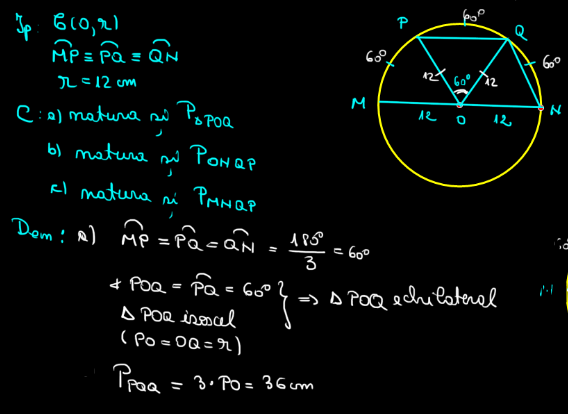 Ip: C(O,r)
M͡P ≡ P͡Q ≡ Q͡N
r = 12 cm
C: a) natura și P△POQ
b) natura și PONQP
c) natura și PMNQP
Dem: a) M͡P = P͡Q = Q͡N = 180°/3 = 60°
∢ POQ = P͡Q = 60°
△ POQ isoscel
(PO = OQ = r)
} ⇒ △ POQ echilateral
PPOQ = 3 · PO = 36 cm
P
60°
Q
60°
60°
12
60°
12
M
12
O
12
N